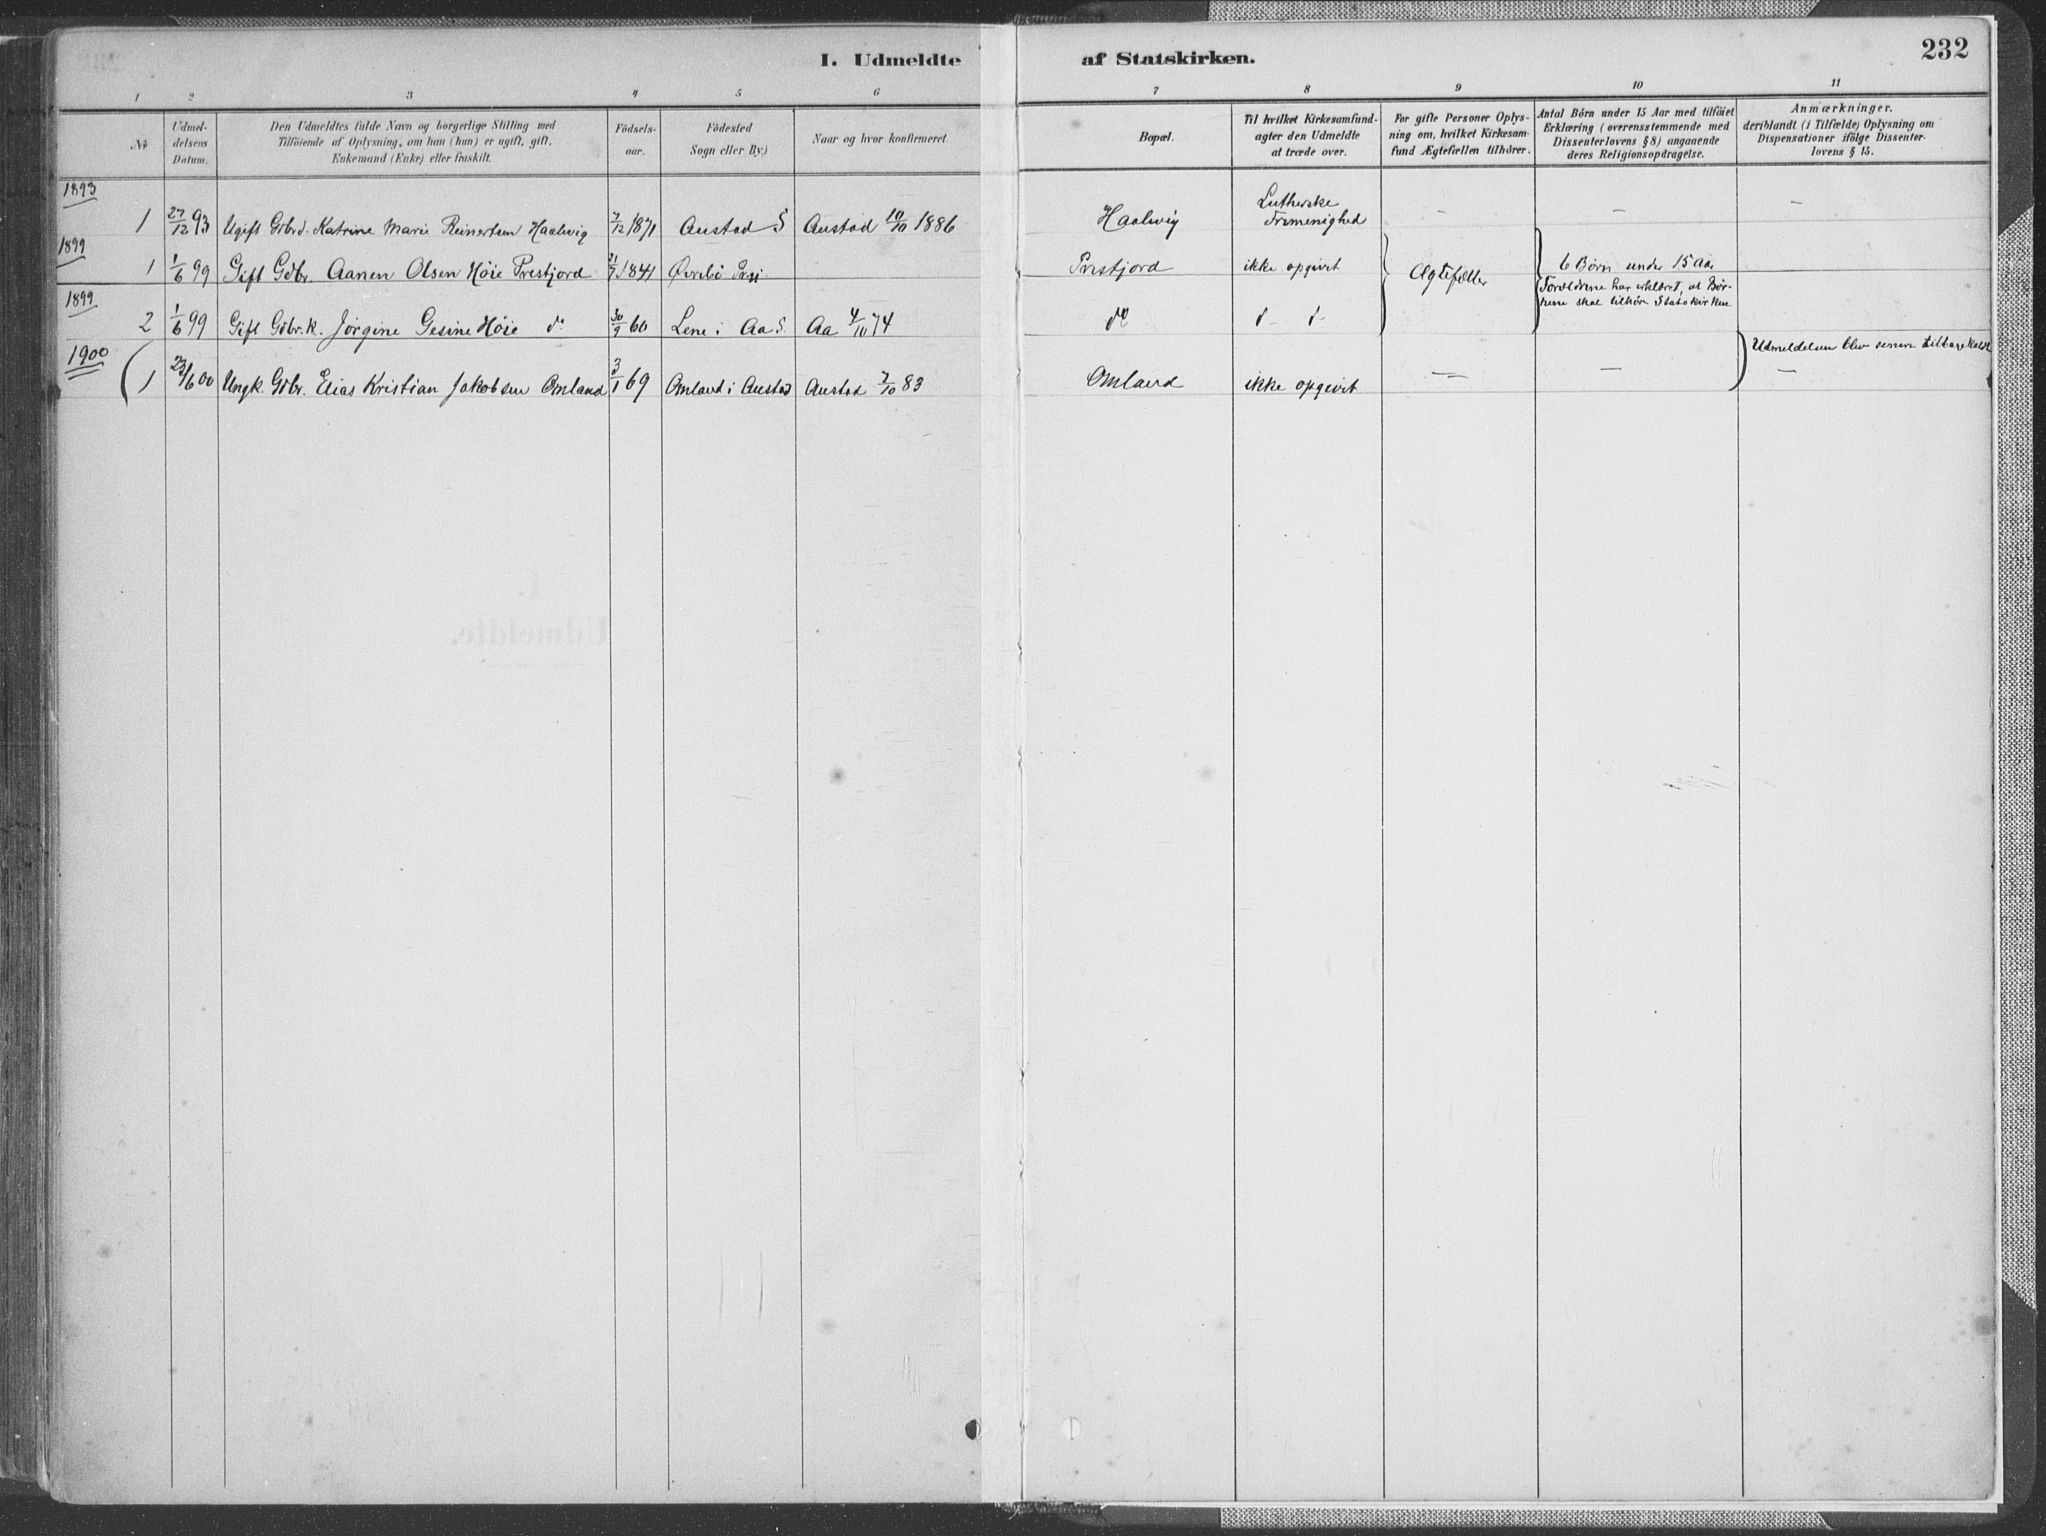 I. Udmeldte af Statskirken. 232
1 2 3 4 5 6 7 8 9 10 11
№
Udmel-
delsens
Datum.
Den Udmeldtes fulde Navn og borgerlige Stilling med
Tilføiende af Oplysning, om han (hun) er ugift, gift,
Enkemand (Enke) eller fraskilt.
Fødsels-
aar.
Fødested
Sogn eller By.)
Naar og hvor konfirmeret
Bopæl.
Til hvilket Kirkesamfund-
agter den Udmeldte
at træde over.
For gifte Personer Oplys-
ning om, hvilket Kirkesam-
fund Ægtefællen tilhører.
Antal Børn under 15 Aar med tilføiet
Erklæring (overensstemmende med
Dissenterlovens § 8) angaaende
deres Religionsopdragelse.
Anmærkninger.
deriblandt (i Tilfælde) Oplysning om
Dispensationer ifølge Dissenter-
lovens § 15.
1893
1 27/12 93 Ugift Gbrd. Katrine Marie Reinertsen Haalevig 7/12 1871 Austad S Austad 10/10 1886 Haalevig Lutherske Frimenighed — — —
1899
1 1/6 99 Gift Gdbr. Aanen Olsen Høie Prestjord 21/7 1841 Øvrebø Prestjord ikke opgivet Ægtefæller 6 Børn under 15 Aar
Forældrene har erklæret, at Bør-
nene skal tilhøre Statskirken
1899
2 1/6 99 Gift Gdbr.k. Jørgine Gesine Høie do 30/9 60 Lene i Aa S. Aa 4/10 74 do d- d-
1900
Udmeldelsen blev senere tilbagekaldt
1 23/6 00 Ungk. Gdbr. Elias Kristian Jakobsen Omland 3/1 69 Omland i Austad Austad 7/10 83 Omland ikke opgivet — — —